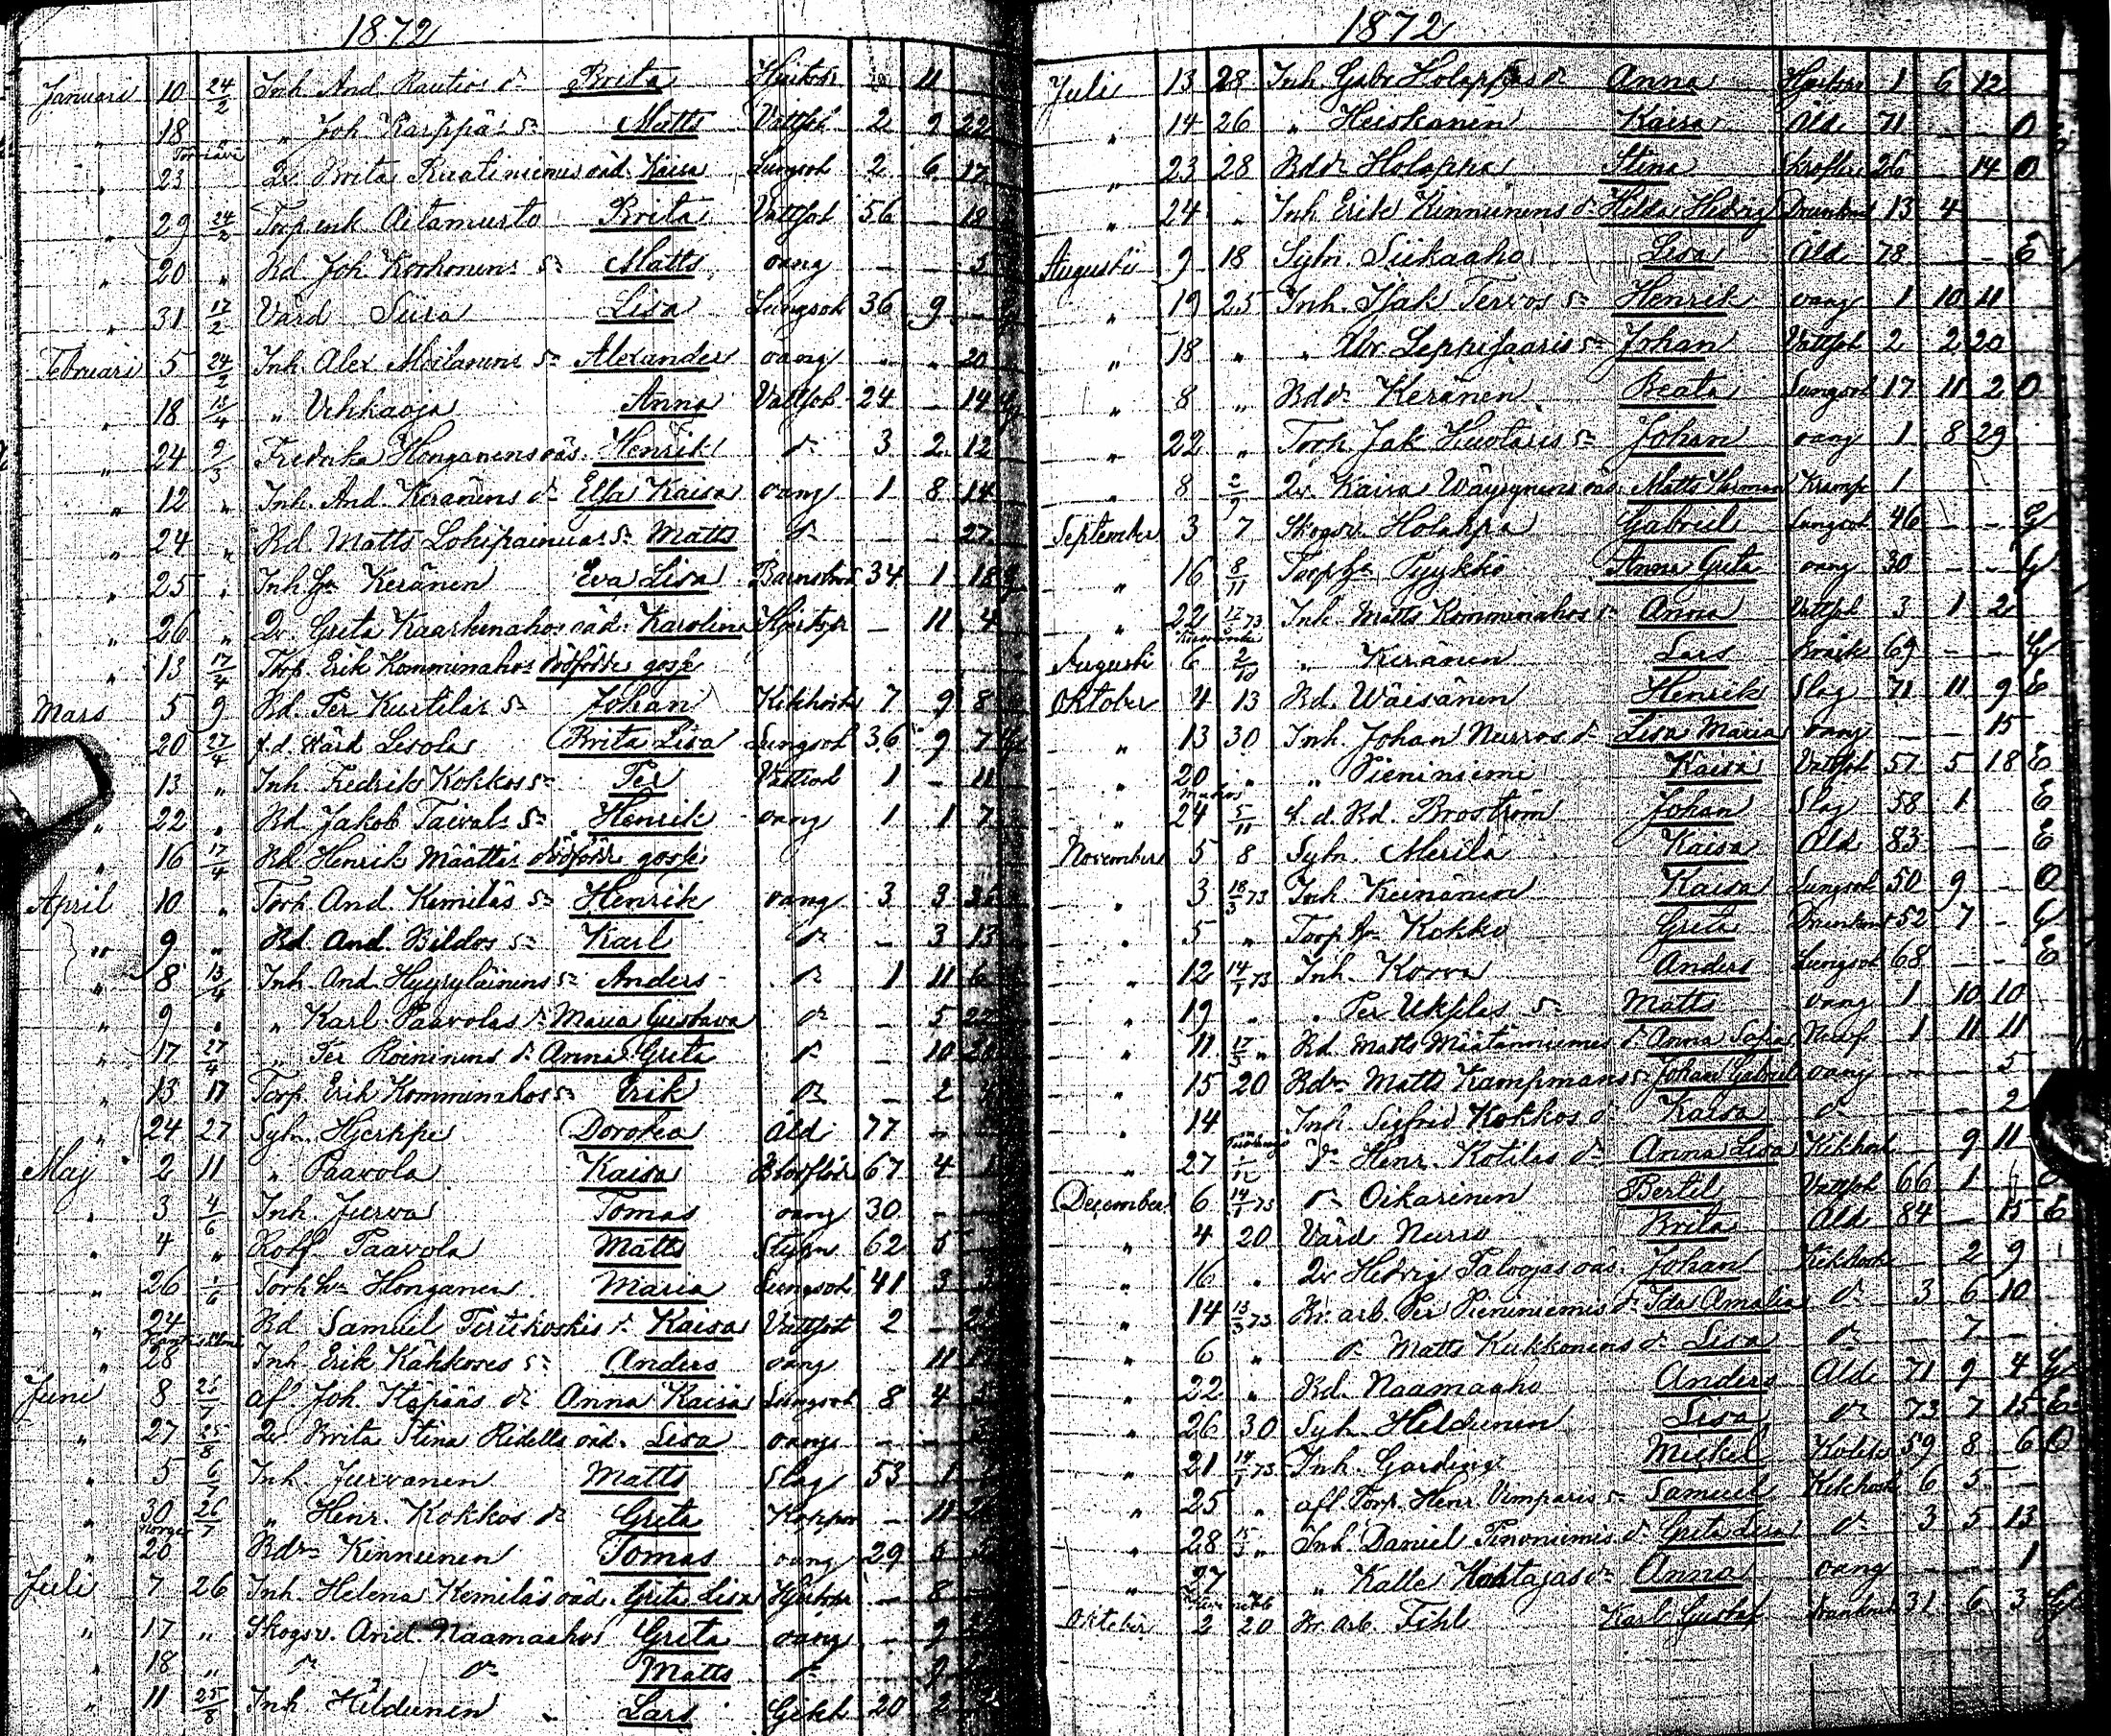 1872
Januari 10 24/2 Inh. And. Rautios dr Brita Hjertspr 11
" 18 " " Joh. Karppäs sn Matts Vattsot 2 9 22
Torriavi
" 23 Qv. Brita Ruatiminus oäd. Kaisa Lungsot 2 6 17
" 29 24/2 Torp enk Aitamurto Brita Vattsot 56 – 18
" 20 " Rd Joh. Korhonens sn Matts oang – – 5
" 31 17/2 Vård Siira Lisa Lungsot 36 9 –
Februari 5 24/2 Inh. Alex Moilanens sn Alexander oang " " 20
" 18 13/4 " Vehkaoja Anna Vattsot 24 – 14
" 24 9/3 Fredrika Honganens oäs. Henrik dr 3 2 12
" 12 " Inh. And. Keränens dr Elsa Kaisa oang 1 8 14
" 24 " Rd. Matts Lohipainuas sn Matts dr – – 27
" 25 " Inh hu Keränen Eva Lisa Barnsbörd 34 1 18
" 26 " Qv. Greta Kaarkinahos oäd. Karolina Hjertspr – 11 4
" 13 17/4 Torp. Erik Komminahos dödfödde gosse
Mars 5 9 Rd. Per Kurtilas sn Johan Kikhosta 7 9 8
" 20 27/4 f.d. Vård Lisola Brita Lisa Lungsot 36 9 7
" 13 " Inh. Fredrik Kokkos sn Per Vattsot 1 – 11
" 22 " Rd. Jakob Taivals sn Henrik oang 1 1 7
" 16 17/4 Rd Henrik Määttäs dödfödde gosse
April 10 " Torp. And. Kemiläs sn Henrik oang 3 3
" 9 " Rd. And. Bildos sn Karl dr – 3 13
" 8 13/4 Inh. And. Hyyryläinens sn Anders dr 1 11 6
" 9 " " Karl Paavolas dr Maria Gustava dr – 5 22
" 17 27/4 " Per Roininens dr Anna Greta dr – 10 20
" 13 17 Torp. Erik Komminahos sn Erik dr – 2
" 24 27 Sytn. Hjerppe Dorotea Åld. 77 –
Maj 2 11 " Paavola Kaisa Blodflöd 67 4
" 3 4/6 Inh. Jurva Tomas oang 30 –
" 4 " Rotf Paavola Matts Styfn 62 5
" 26 1/6 Torp hu Honganen Maria Lungsot 41 3
" 24 Rd. Samuel Tirikoskis dr Kaisa Vattsot 2
" 28 Inh. Erik Kähkones sn Anders oang 11
Juni 8 25/ af. Joh. Käpääs dr Anna Kaisa Lungsot 8 4
" 27 25/8 Qv. Brita Stina Ridells oäd. Lisa oang –
" 5 6/7 Inh. Jurvanen Matts Slag 53 1
" 30 26/7 " Henr. Kokkos dr Greta Koppor – 11
" 20 Rdrn Kinnunen Tomas oang 29 6
Juli 7 26 Inh. Helena Kemiläs oäd. Greta Lisa Hjertspr – 8
" 17 " Skogsv. And. Naamaahos Greta oang – 9
" 18 " dr dr Matts dr 9
" 11 25/8 Inh Hildunen Lars Gikt 20 2
1872
Juli 13 28 Inh. Gabr Holappas dr Anna Hjertspr 1 6 12
" 14 26 " Heiskanen Kaisa Åld. 71 – – O
" 23 28 Rddr Holappa Stina Skrofler 26 14 O
" 24 " Inh. Erik Kinnunens dr Hilda Hedvig Drunknad 13 4
Augusti 9 18 Sytn. Siikaaho Lisa Åld 78 – – E
" 19 25 Inh. Isak Tervos sn Henrik oang 1 10 11
" 18 " " Abr Leppisaaris sn Johan Vattsot 2 2 20
" 8 " Rddr Keränen Beata Lungsot 17 11 2 O
" 22 " Torp. Jak Huotaris sn Johan oang 1 8 29
" 8 2/9 Qv. Kaisa Wäyrynens oäs. Matts Herman Kramp 1
September 3 7 Skogsv Holappa Gabriel Lungsot 46 – – G
" 16 8/11 Torp hu Pyykkö Anna Greta oang 30 – – G
" 22 17/ 73 Inh. Matts Komminahos dr Anna Vattsot 3 1 2
Augusti 6 2/10 " Keränen Lars Bråck 69 – – G
Oktober 4 13 Rd. Wäisänen Henrik Slag 71 11 9 E
" 13 30 Inh. Johan Nurros dr Lisa Maria oang – – 15
" 20 " " Pieniniemi Kaisa Vattsot 57 5 18 E
Muhos
" 24 5/11 f.d. Rd. Broström Johan Slag 58 1 E
November 5 8 Sytn. Merila Kaisa Åld 83 – – E
" 3 18/3 73 Inh Keinänen Kaisa Lungsot 50 9 – O
" 5 " Torp hu Kokko Greta Drunknad 52 7 – G
" 12 14/1 73 Inh. Korva Anders Lungsot 68 – – E
" 19 " " Per Ukplas sn Matts oang 1 10 10
" 11 17/3 " Rd. Matts Määtänniemis dr Anna Sofia Nerff 1 11 11
" 15 20 Rdrn Matts Kampmans sn Johan Gabriel oang – – 5
" 14 Inh. Sigfrid Kokkos dr Kaisa dr – – 2
" 27 1/12 dr Henr. Kotilas dr Anna Lisa Kikhost 9 11
December 6 14/1 73 dr Oikarinen Bertil Vattsot 66 1
" 4 20 Vård Nurro Brita Åld 84 – 15 E
" 16 " Qv Hedvig Talvojas oäs. Johan Kikhosta 2 9
" 14 13/3 73 Kr. arb. Per Pieniniemis dr Ida Amalia dr 3 6 10
" 6 " dr Matts Kukkonens dr Lisa dr – 7 –
" 22 " Rd. Naamaaho Anders Åld 71 9 4 G
" 26 30 Syt. Hildunen Lisa dr 73 7 15 E
" 21 14/1 73 Inh. Garding Mickel Kolik 59 8 6 O
" 25 " afl. Torp. Henr Vimparis sn Samuel Kikhost 6 5 –
" 28 15/3 " Inh. Daniel Pinoniemis dr Greta Lisa dr 3 5 13
" 27 " " Kalle Hautajas dr Anna oang – – 1
Oktober 2 20 Kr. arb. Fihl Karl Gustaf Drunknad 31 6 3 G